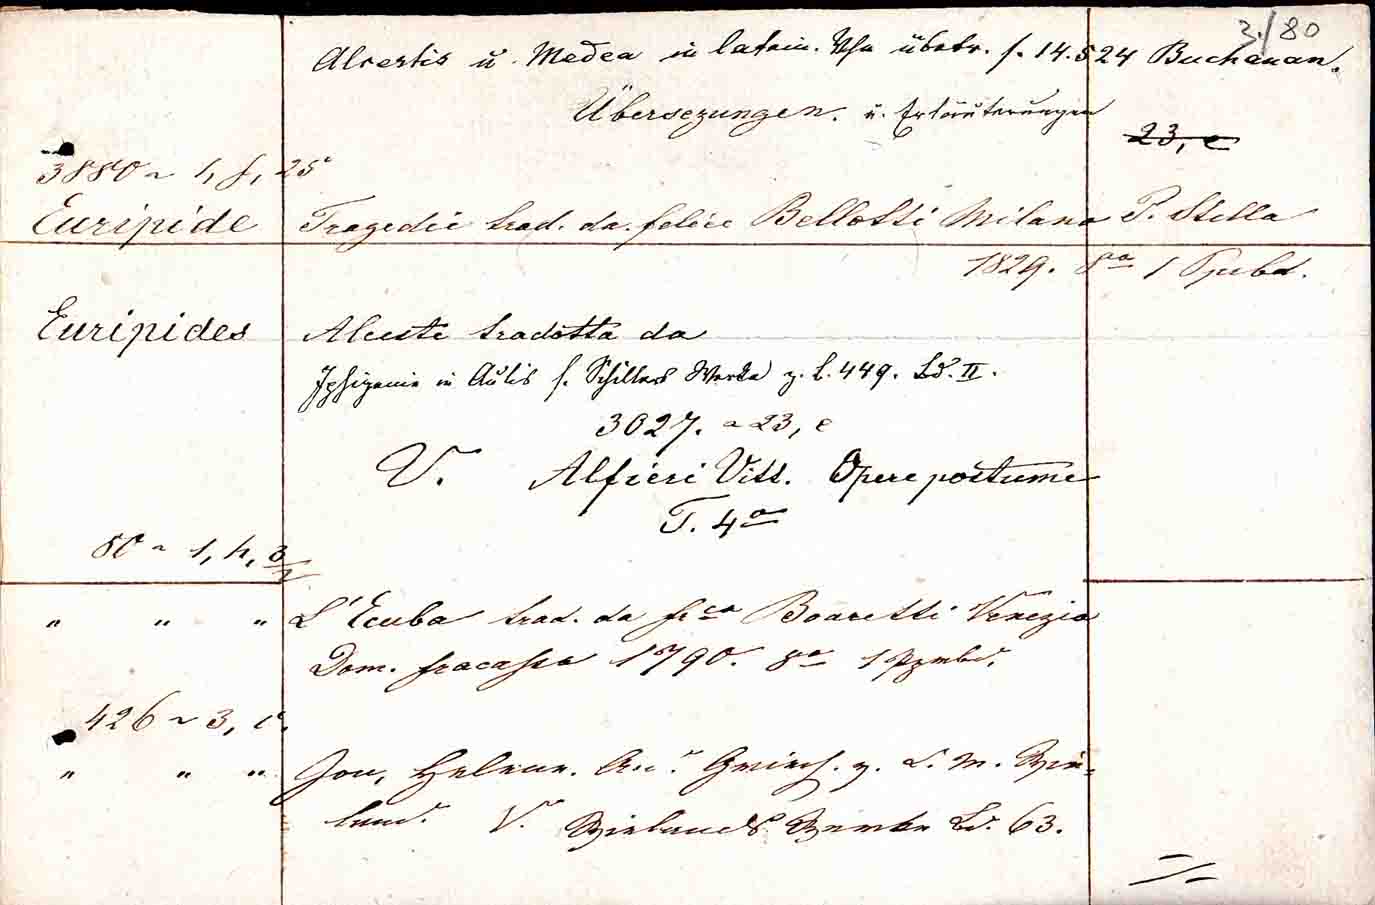 3./80
Alcestis u. Medea in latein. Vse übstr. s. 14.524 Buchanan.
Übersezungen. u. Erläuterungen
23, e
3880 ~ 1, f, 25
Euripide Tragedie trad. da felice Bellotti Milano P. Stella
1829. 8vo 1 Ppbd.
Euripides Alceste tradotta da
Iphigenie in Aulis s. Schillers Werke z. L. 449. Bd. II.
3027. ~ 23, e
V. Alfieri Vitt. Opere postume
T. 4o
50 ~ 1, h, 3/2
" " " L'Ecuba trad. da frco Boaretti Venezia
Dom. fracasso 1790. 8o 1 Pgmbd.
426 ~ 3, c.
" " " Jon, Helena. Aus. Griech. v. C. M. Wie-
land. V. Wielands Werke Bd. 63.